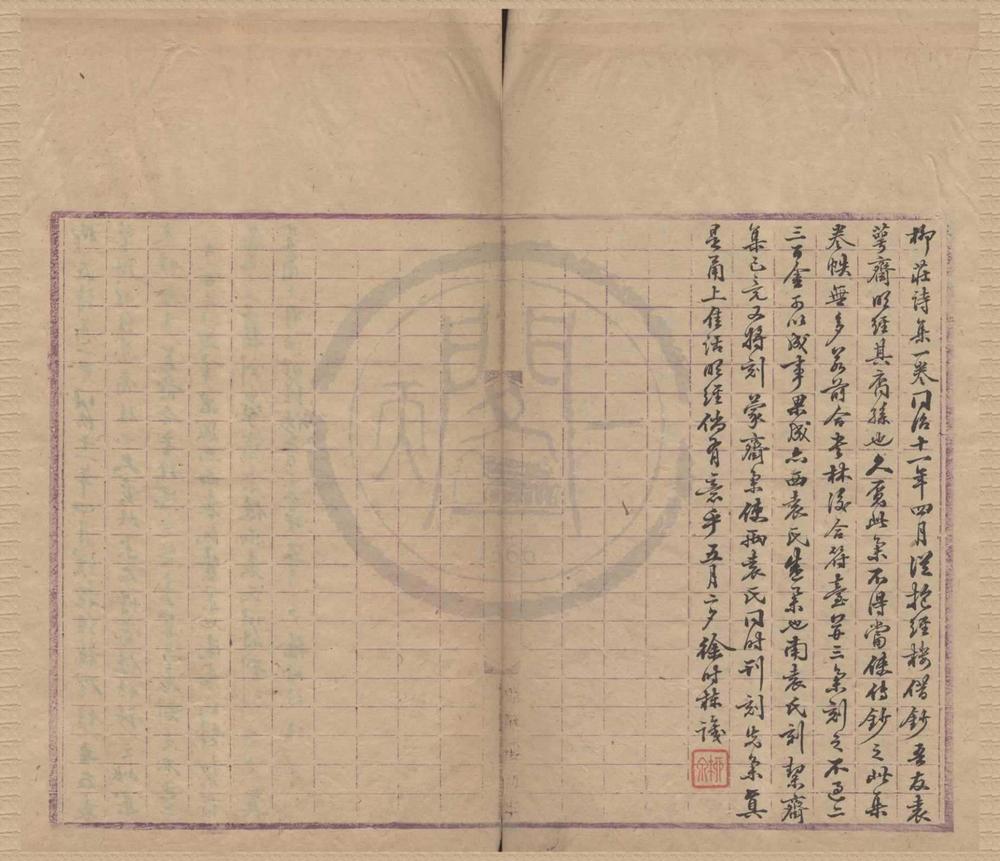 柳莊詩集一卷同治十一年四月從抱經樓借鈔吾友袁
萼齋明經其裔孫也久覓此集不得當使傳鈔之此集
卷帙無多若荷合書林後合符臺等三集刻之不過二
三百金可以成事果成亦西袁氏集也南袁氏刻絜齋
集已竟又將刻蒙齋集使兩袁氏同時刊刻先集真
是甬上佳話明經倘有意乎五月二夕徐時棟識
柳泉